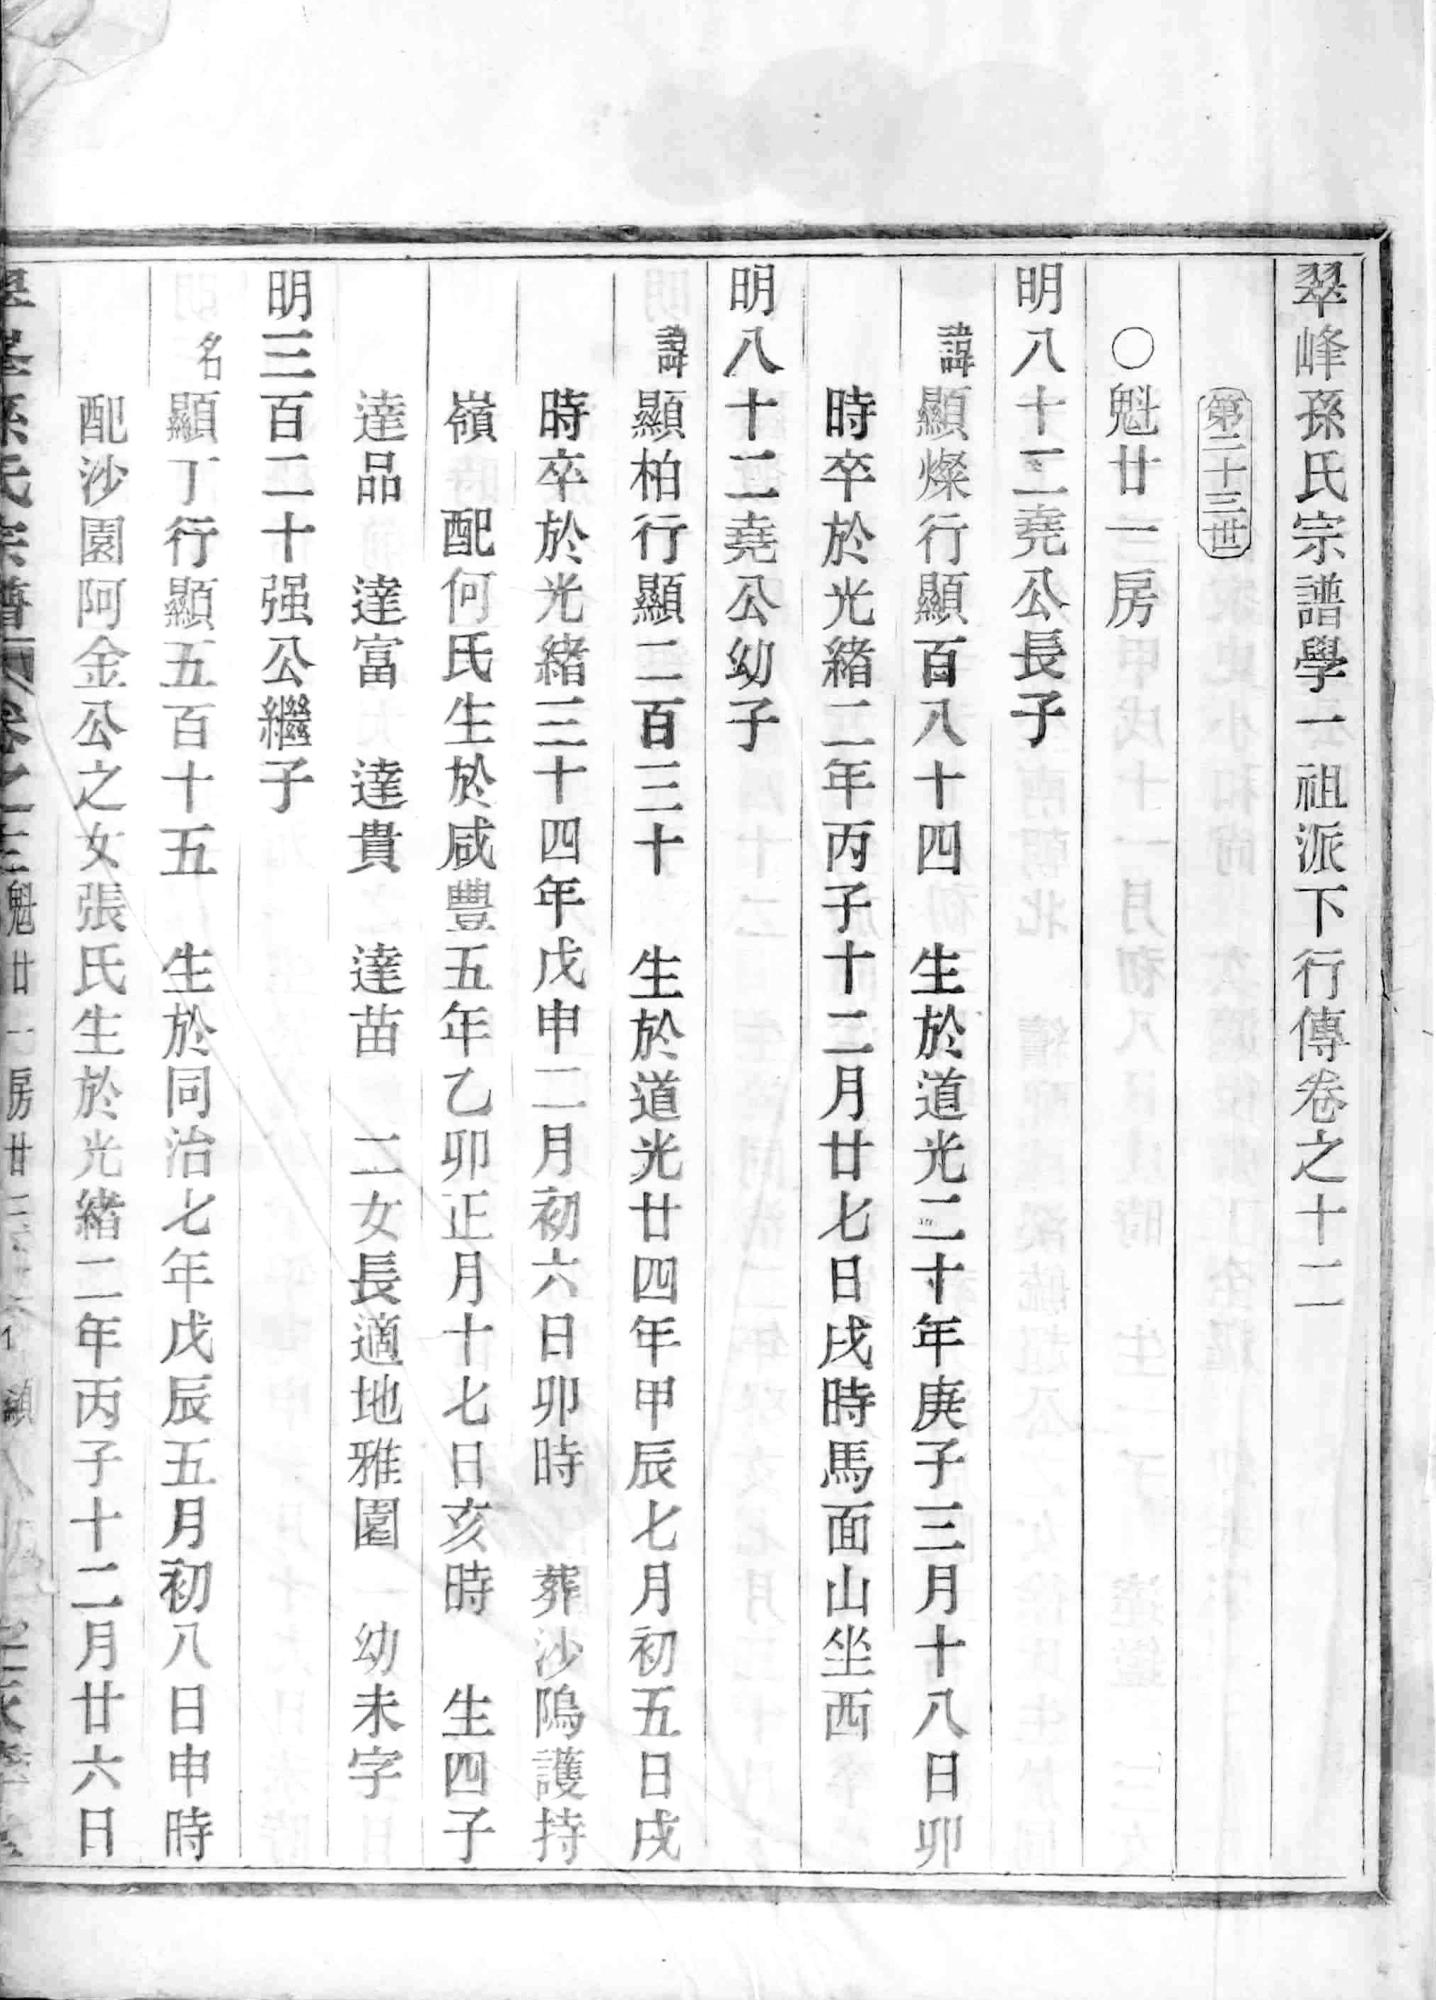 翠峰孫氏宗譜學一祖派下行傳卷之十二
第二十三世
○魁廿一房
明八十二堯公長子
諱顯燦行顯百八十四 生於道光二十年庚子三月十八日卯
時卒於光緒二年丙子十二月廿七日戌時馬面山坐西
明八十二堯公幼子
諱顯柏行顯二百三十 生於道光廿四年甲辰七月初五日戌
時卒於光緒三十四年戊申二月初六日卯時 葬沙隖護持
嶺 配何氏生於咸豐五年乙卯正月十七日亥時 生四子
達品 達富 達貴 達苗 二女長適地雅園 一幼未字
明三百二十强公繼子
名顯丁行顯五百十五 生於同治七年戊辰五月初八日申時
配沙園阿金公之女張氏生於光緒二年丙子十二月廿六日
翠峯孫氏宗譜 卷之 魁廿一房廿三